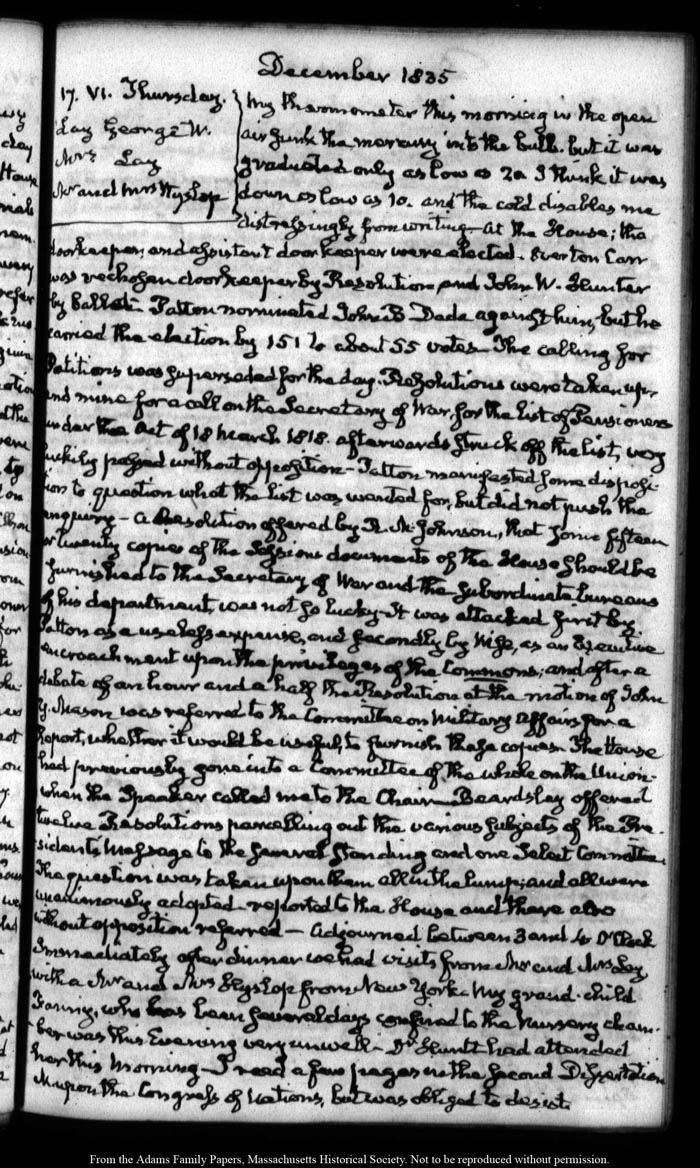 December 1835
17. VI. Thursday.
Lay George W.
Mrs Lay
Mr and Mrs Hyslop
My thermometer this morning in the open
air sunk the mercury into the bulb. but it was
graduated only as low as 20 I think it was
down as low as 10. and the cold disables me
distressingly from writing—At the House; the
doorkeeper, and assistant doorkeeper were elected. Overton Carr
was rechosen doorkeeper by Resolution and John W. Hunter
by ballot. Patton nominated John B Dade against him, but he
carried the election by 151 to about 55 votes—The calling for
Petitions was superseded for the day. Resolutions were taken up,
and mine for a call on the Secretary of War, for the list of Pensioners
under the Act of 18 March 1818. afterwards struck off the list, very
luckily passed without opposition—Patton manifested some disposi-
tion to question what the list was wanted for, but did not push the
enquiry—a Resolution offered by R. M. Johnson, that some fifteen
or twenty copies of the Sessions documents of the House should be
furnished to the Secretary of War and the subordinate bureaus
of his department, was not so lucky—It was attacked first by
Patton as a useless expense, and secondly by Wise, as an Executive
encroachment upon the privileges of the Commons; and after a
debate of an hour and a half the Resolution at the motion of John
Y. Mason was referred to the Committee on Military Affairs for a
Report, whether it would be useful, to furnish these copies. The House
had previously gone into a Committee of the whole on the Union—
when the Speaker called me to the Chair—Beardsley offered
twelve Resolutions parcelling out the various subjects of the Pre-
sident's Message to the several standing and one Select Committee.
The question was taken upon them all in the lump; and all were
unanimously adopted—reported to the House and there also
without opposition referred—Adjourned between 3 and 4 O'Clock
Immediately after dinner we had visits from Mr and Mrs Lay,
with a Mr and Mrs Hyslop from New York—My grand-child
Fanny, who has been several days confined to the nursery cham-
ber was this Evening very unwell—Dr Huntt had attended
her this Morning—I read a few pages in the second Dissertation
upon the Congress of Nations, but was obliged to desist.
From the Adams Family Papers, Massachusetts Historical Society. Not to be reproduced without permission.